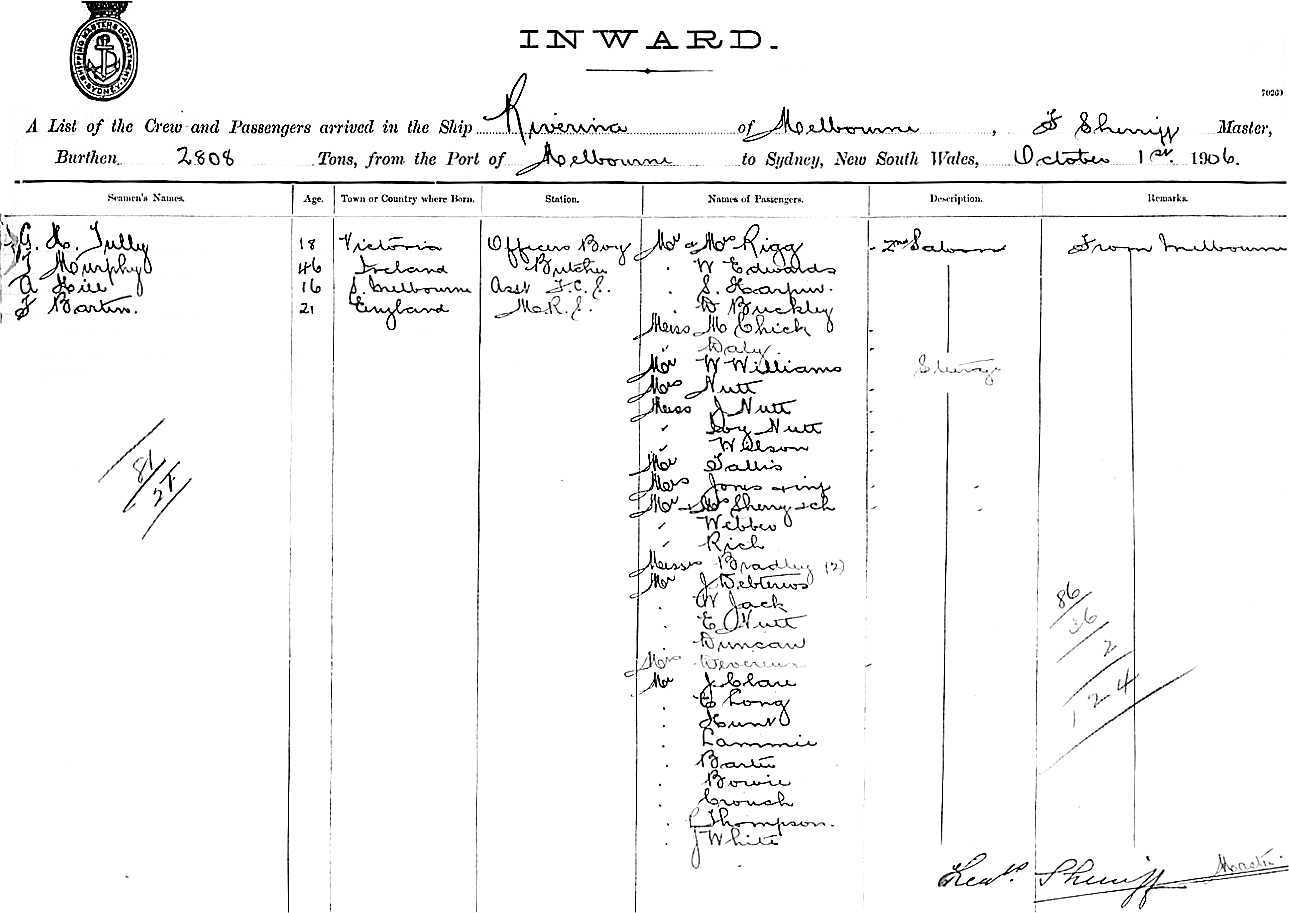 SHIPPING MASTERS DEPARTMENT SYDNEY
INWARD.
A List of the Crew and Passengers arrived in the Ship Riverina of Melbourne, F Sherriff Master,
Burthen 2808 Tons, from the Port of Melbourne to Sydney, New South Wales, October 1st 1906.
Seamen's Names. Age. Town or Country where Born. Station. Names of Passengers. Description. Remarks.
G. H. Tully 18 Victoria Officers Boy Mr & Mrs Rigg 2nd Saloon From Melbourne
T Murphy 46 Ireland Butcher W Edwards
A Hill 16 S. Melbourne Asst F.C.S. S. Harpur.
F Bartin. 21 England M.R.S. D Buckley
Miss M Chick
" Daly
Mr W Williams Steerage
Mrs Nutt
Miss J Nutt
" Ivy Nutt
" Wilson
Mr Tallis
Mrs Jones & inf
Mr & Mrs Sherry & ch
" Webber
" Rich
Misses Bradley (2)
Mr J
W Jack
E Nutt
Duncan
Devereux
Mr J. Clare
E Long
Hunt
Lammie
Barter
Bowie
Crouch
Thompson.
J White
81
25
86
36
2
124
Sherriff Master.